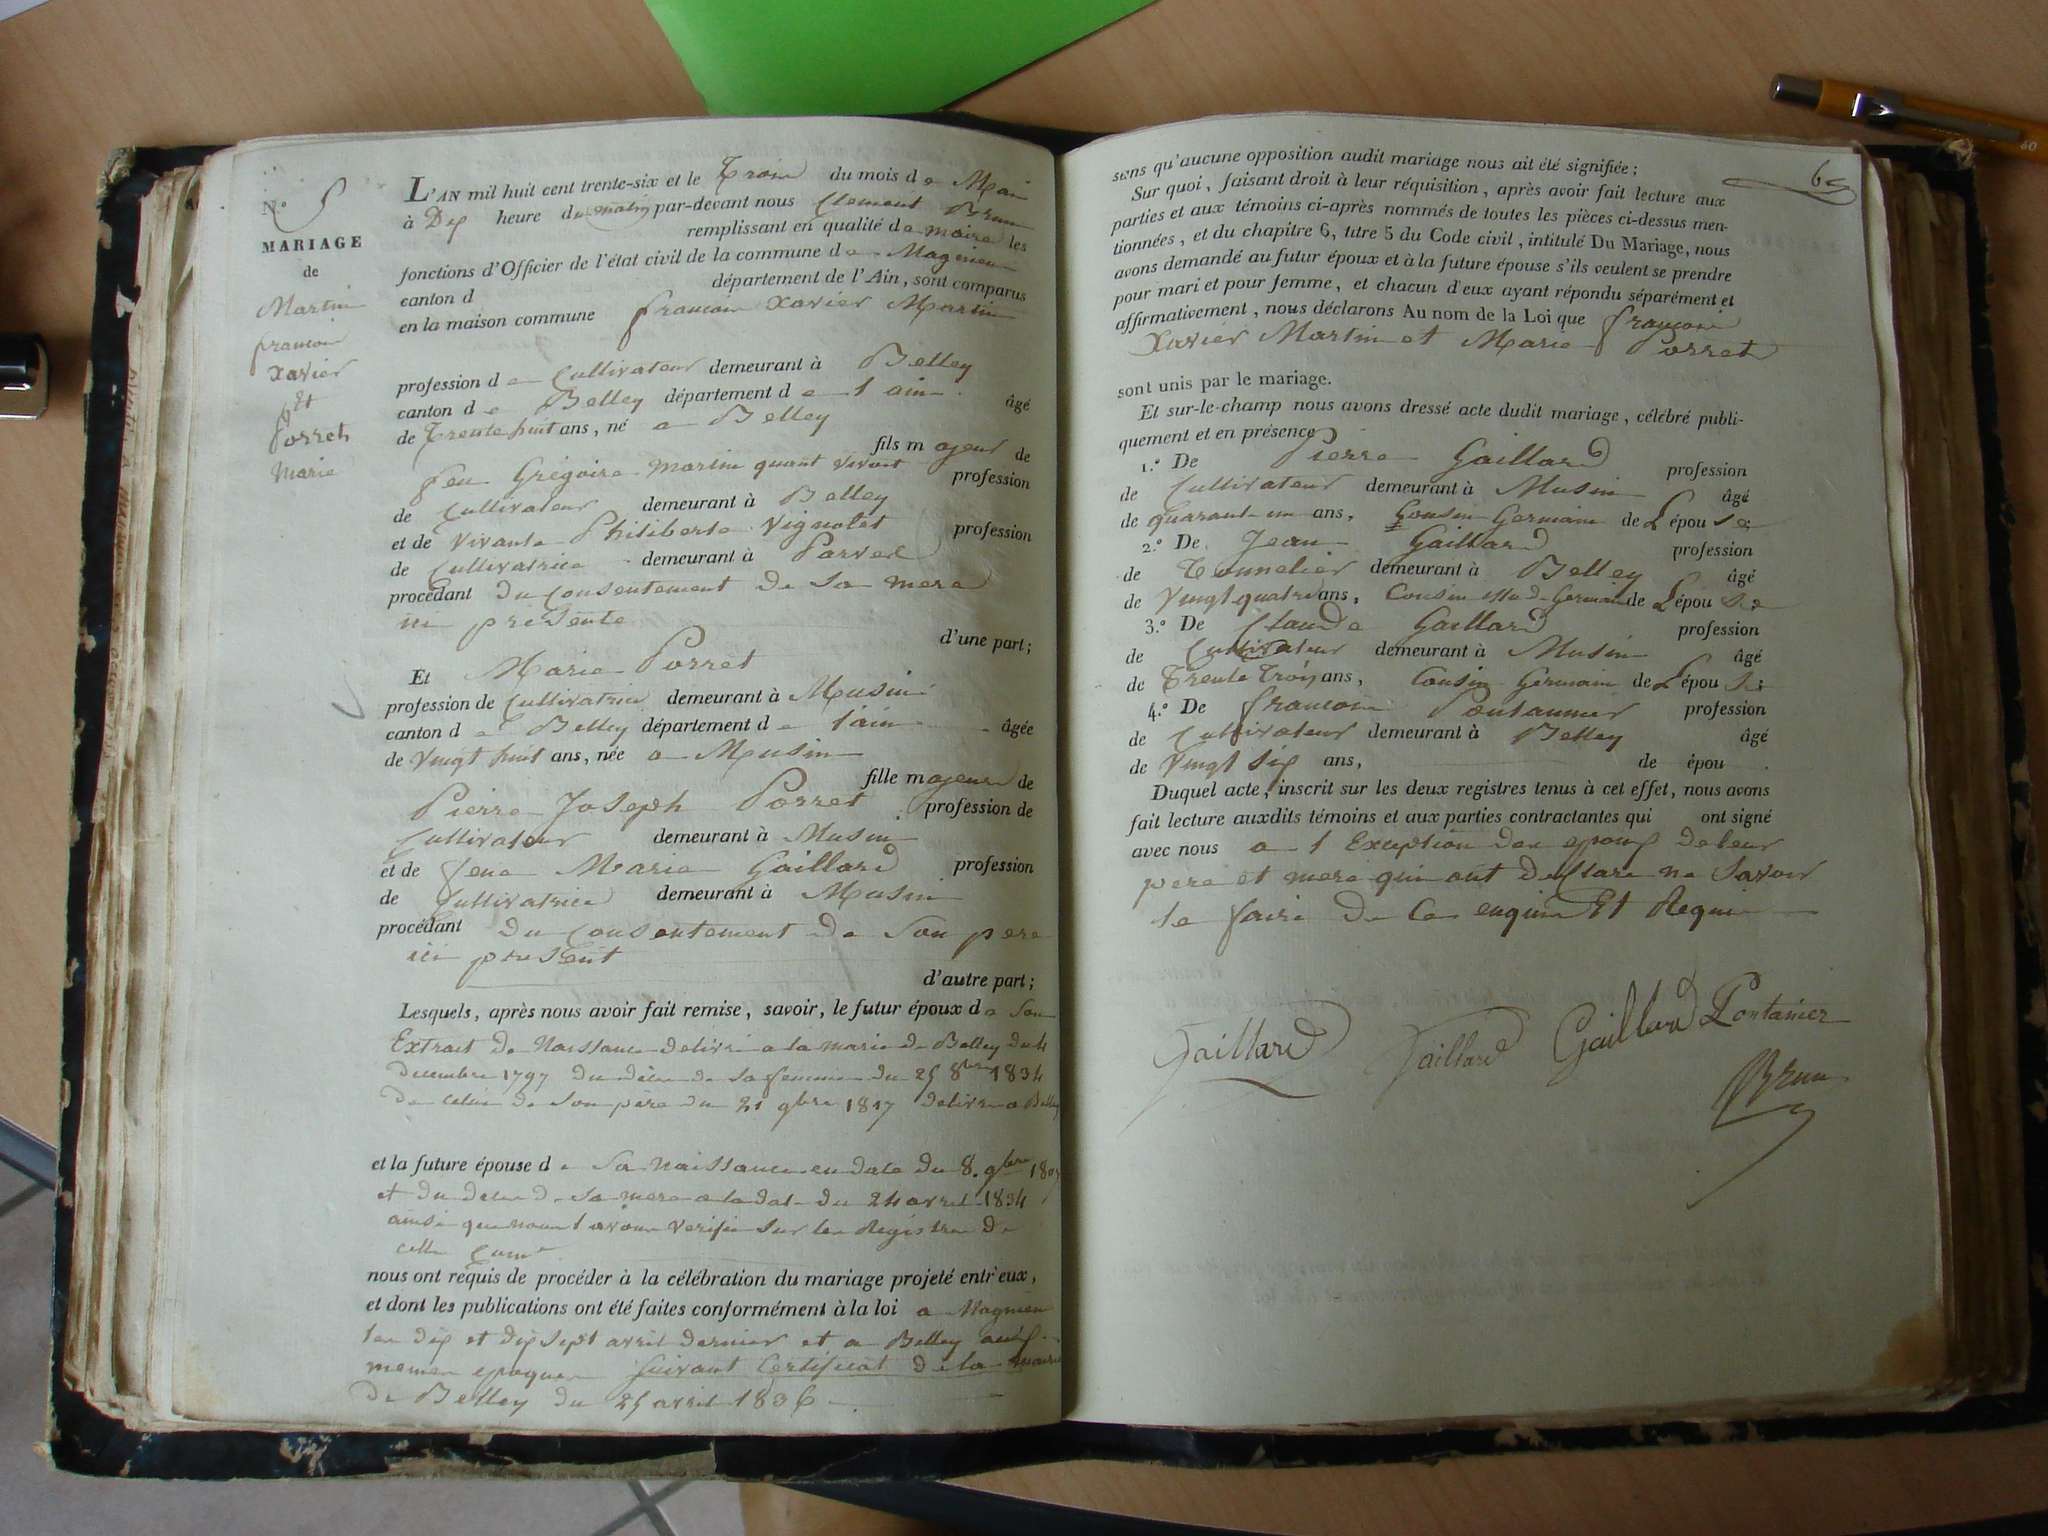 N.º 5
MARIAGE
de
Martin
françois
xavier
Et
Porret
Marie
L'AN mil huit cent trente-six et le Trois du mois de Mai
à Dix heure du matin par-devant nous Clement Brun
remplissant en qualité de maire les
fonctions d'Officier de l'état civil de la commune de Magnieu
canton d département de l'Ain, sont comparus
en la maison commune françois Xavier Martin
profession de Cultivateur demeurant à Belley
canton de Belley département de l ain âgé
de Trente huit ans, né a Belley
fils majeur de
feu Grégoire Martin quant vivait profession
de Cultivateur demeurant à Belley
et de vivante Philiberte Vignolet profession
de Cultivatrice demeurant à Parves
procédant du Consentement de sa mere
ici présente
d'une part;
Et Marie Porret
profession de Cultivatrice demeurant à Musin
canton de Belley département de l'ain âgée
de Vingt huit ans, née a Musin
fille majeure de
Pierre Joseph Porret profession de
Cultivateur demeurant à Musin
et de feue Marie Gaillard profession
de Cultivatrice demeurant à Musin
procédant du Consentement de Son pere
ici présent
d'autre part;
Lesquels, après nous avoir fait remise, savoir, le futur époux de Son
Extrait de Naissance delivré a la mairie de Belley du 4
decembre 1797 du décès de sa femme du 25 8bre 1834
de celui de Son père du 21 9bre 1817 delivré a Belley
et la future épouse de Sa Naissance en date du 8. 9bre 1807
et du décès de sa mere a la date du 24 avril 1834
ainsi que nous l avons verifié sur les Registres de
cette Comne
nous ont requis de procéder à la célébration du mariage projeté entr'eux,
et dont les publications ont été faites conformément à la loi a Magnieu
les dix et dix sept avril dernier et a Belley aux
memes epoques suivant Certificat de la mairie
de Belley du 25 avril 1836
6
sans qu'aucune opposition audit mariage nous ait été signifiée;
Sur quoi, faisant droit à leur réquisition, après avoir fait lecture aux
parties et aux témoins ci-après nommés de toutes les pièces ci-dessus men-
tionnées, et du chapitre 6, titre 5 du Code civil, intitulé Du Mariage, nous
avons demandé au futur époux et à la future épouse s'ils veulent se prendre
pour mari et pour femme, et chacun d'eux ayant répondu séparément et
affirmativement, nous déclarons Au nom de la Loi que françois
Xavier Martin et Marie Porret
sont unis par le mariage.
Et sur-le-champ nous avons dressé acte dudit mariage, célébré publi-
quement et en présence
1.º De Pierre Gaillard profession
de Cultivateur demeurant à Musin âgé
de quarant un ans, Cousin Germain de L épouse
2.º De Jean Gaillard profession
de Tonnelier demeurant à Belley âgé
de Vingt quatre ans, Cousin issu d Germain de L épouse
3.º De Claude Gaillard profession
de Cultivateur demeurant à Musin âgé
de Trente Trois ans, Cousin Germain de L épouse
4.º De françois Pontannier profession
de Cultivateur demeurant à Belley âgé
de Vingt six ans, de épou .
Duquel acte, inscrit sur les deux registres tenus à cet effet, nous avons
fait lecture auxdits témoins et aux parties contractantes qui ont signé
avec nous a l Exception des epoux de leur
pere et mere qui ont declaré ne Savoir
le faire de Ce enquis Et Requis
Gaillard Gaillard Gaillard Pontanier
Brun